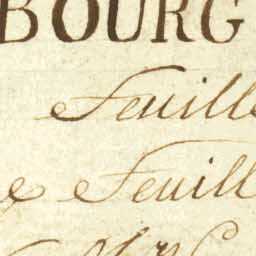 BOURG
Feuille
e Feuill